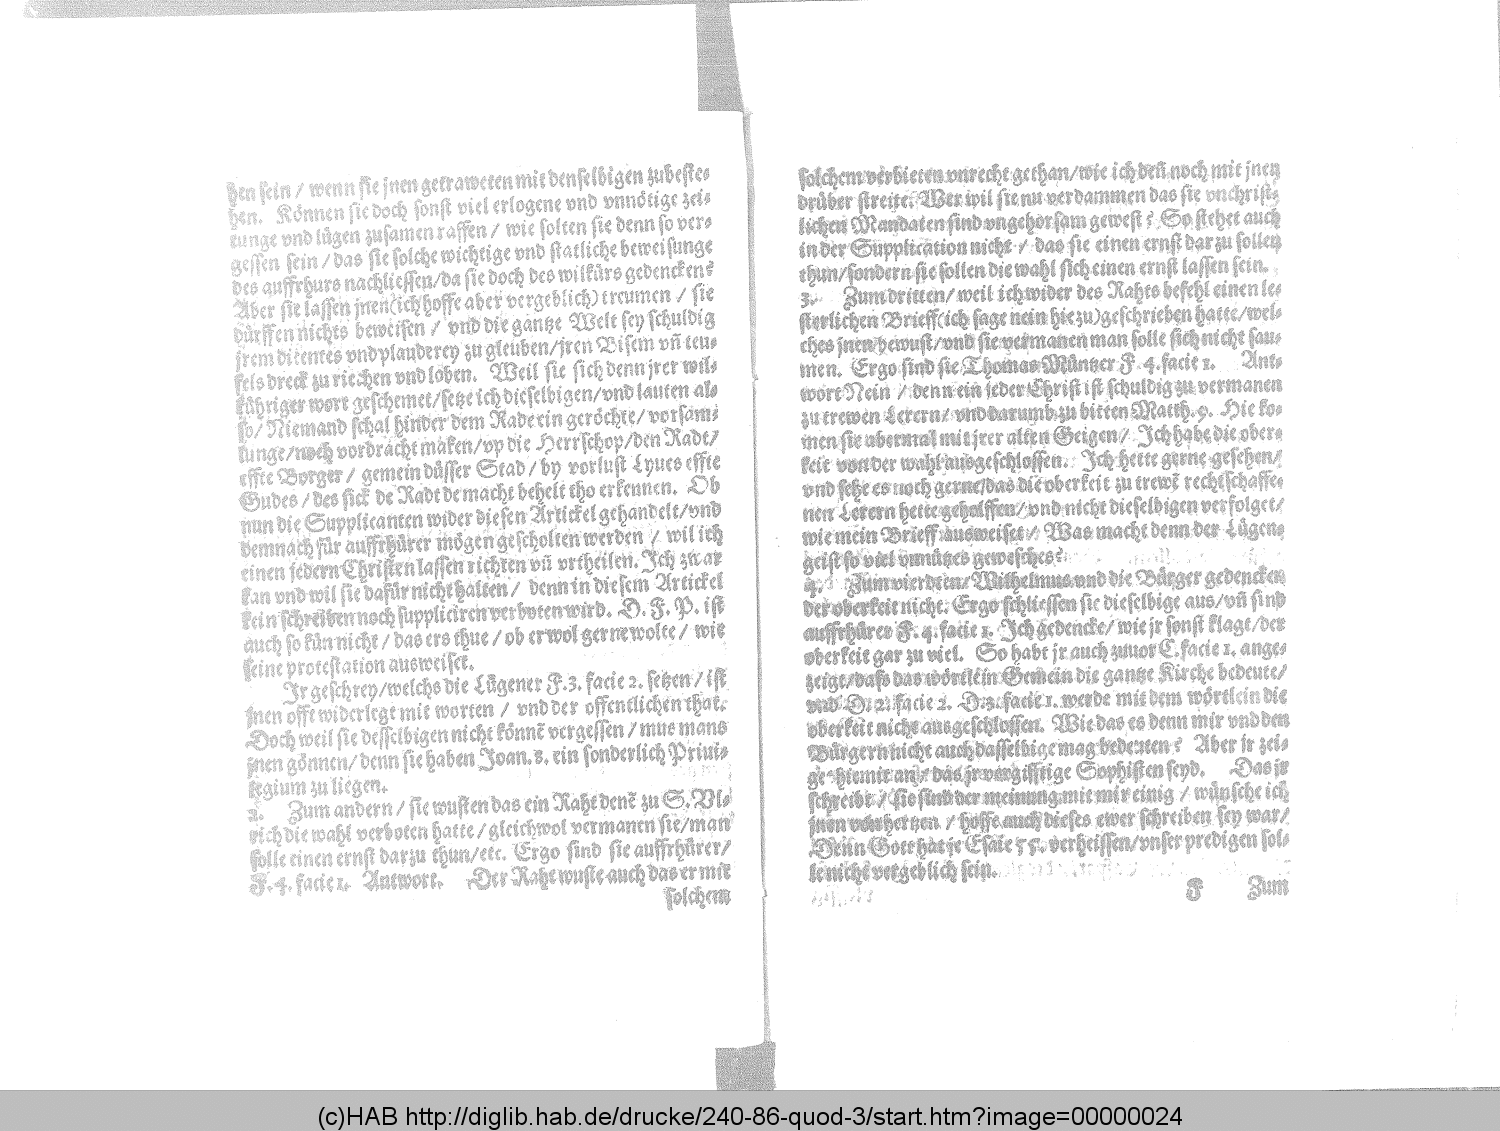 hen sein / wenn sie jnen getraweten mit denselbigen zubeste⸗
hen. Können sie doch sonst viel erlogene vnd vnnötige zei⸗
tunge vnd lügen zusamen raffen / wie solten sie denn so ver⸗
gessen sein / das sie solche wichtige vnd statliche beweisunge
des auffrhurs nachliessen/da sie doch des wilkürs gedencken?
Aber sie lassen jnen(ich hoffe aber vergeblich) treumen / sie
dürffen nichts beweisen / vnd die gantze Welt sey schuldig
jrem ditentes vnd plauderey zu gleuben/jren Bisem vñ teu⸗
fels dreck zu riechen vnd loben. Weil sie sich denn jrer wil⸗
kühriger wort geschemet/setze ich dieselbigen/vnd lauten als
so/ Niemand schal hinder dem Rade ein geröchte/ vorsam⸗
lunge/noch vordracht maken/vp die Herrschop/den Radt/
effte Borger / gemein düsser Stad / by vorlust Lyues effte
Gudes / des sick de Radt de macht behelt tho erkennen. Ob
nun die Supplicanten wider diesen Artickel gehandelt/vnd
demnach für auffrhürer mögen gescholten werden / wil ich
einen jedern Christen lassen richten vñ vrtheilen. Ich zwar
kan vnd wil sie dafür nicht halten / denn in diesem Artickel
kein schreiben noch suppliciren verboten wird. D. F. P. ist
auch so kün nicht / das ers thue / ob er wol gerne wolte / wie
seine protestation ausweiset.
Ir geschrey/welchs die Lügener F.3. facie 2. setzen / ist
jnen offt widerlegt mit worten / vnd der offentlichen that.
Doch weil sie desselbigen nicht könnē vergessen / mus mans
jnen gönnen/ denn sie haben Joan.8. ein sonderlich Priui⸗
legium zu liegen.
2. Zum andern / sie wusten das ein Raht denē zu S. Vl⸗
rich die wahl verboten hatte / gleichwol vermanen sie/man
solle einen ernst darzu thun/etc. Ergo sind sie auffrhürer/
F. 4. facie 1. Antwort. Der Raht wuste auch das er mit
solchem
solchem verbieten vnrecht gethan/wie ich deñ noch mit jnen
drüber streite. Wer wil sie nu verdammen das sie vnchrist⸗
lichen Mandaten sind vngehorsam gewest? So stehet auch
in der Supplication nicht / das sie einen ernst darzu sollen
thun/sondern sie sollen die wahl sich einen ernst lassen sein.
3. Zum dritten/ weil ich wider des Rahts befehl einen le⸗
sterlichen Brieff(ich sage nein hiezu)geschrieben hatte/wel⸗
ches jnen bewust/vnd sie vermanen man solle sich nicht sau⸗
men. Ergo sind sie Thomas Müntzer F. 4. facie 1. Ant⸗
wort Nein / denn ein jeder Christ ist schuldig zu vermanen
zu trewen Lerern/ vnd darumb zu bitten Matth. 9. Hie ko⸗
men sie abermal mit jrer alten Geigen/ Ich habe die ober⸗
keit von der wahl ausgeschlossen. Ich hette gerne gesehen/
vnd sehe es noch gerne/das die oberkeit zu trewē rechtschaffe⸗
nen Lerern hette geholffen/vnd nicht dieselbigen verfolget/
wie mein Brieff ausweiset/ Was macht denn der Lügen⸗
geist so viel vnnützes gewesches?
4. Zum vierdten/ Wilhelmus vnd die Bürger gedencken
der oberkeit nicht. Ergo schliessen sie dieselbige aus/vñ sind
auffrhürer F. 4. facie 1. Ich gedencke/ wie jr sonst klagt/der
oberkeit gar zu viel. So habt jr auch zuuor C. facie 1. ange⸗
zeigt/dass das wörtlein Gemein die gantze Kirche bedeute/
vnd D. 2. facie 2. D.3. facie 1. werde mit dem wörtlein die
oberkeit nicht ausgeschlossen. Wie das es denn mir vnd den
Bürgern nicht auch dasselbige mag bedeuten? Aber jr zei⸗
ge hiemit an / das jr vergifftige Sophisten seyd. Das jr
schreibt / Sie sind der meinung mit mir einig / wünsche ich
jnen von hertzen / hoffe auch dieses ewer schreiben sey war/
Denn Gott hat je Esaie 55. verheissen/vnser predigen sol⸗
le nicht vergeblich sein.
F Zum
(c)HAB http://diglib.hab.de/drucke/240-86-quod-3/start.htm?image=00000024